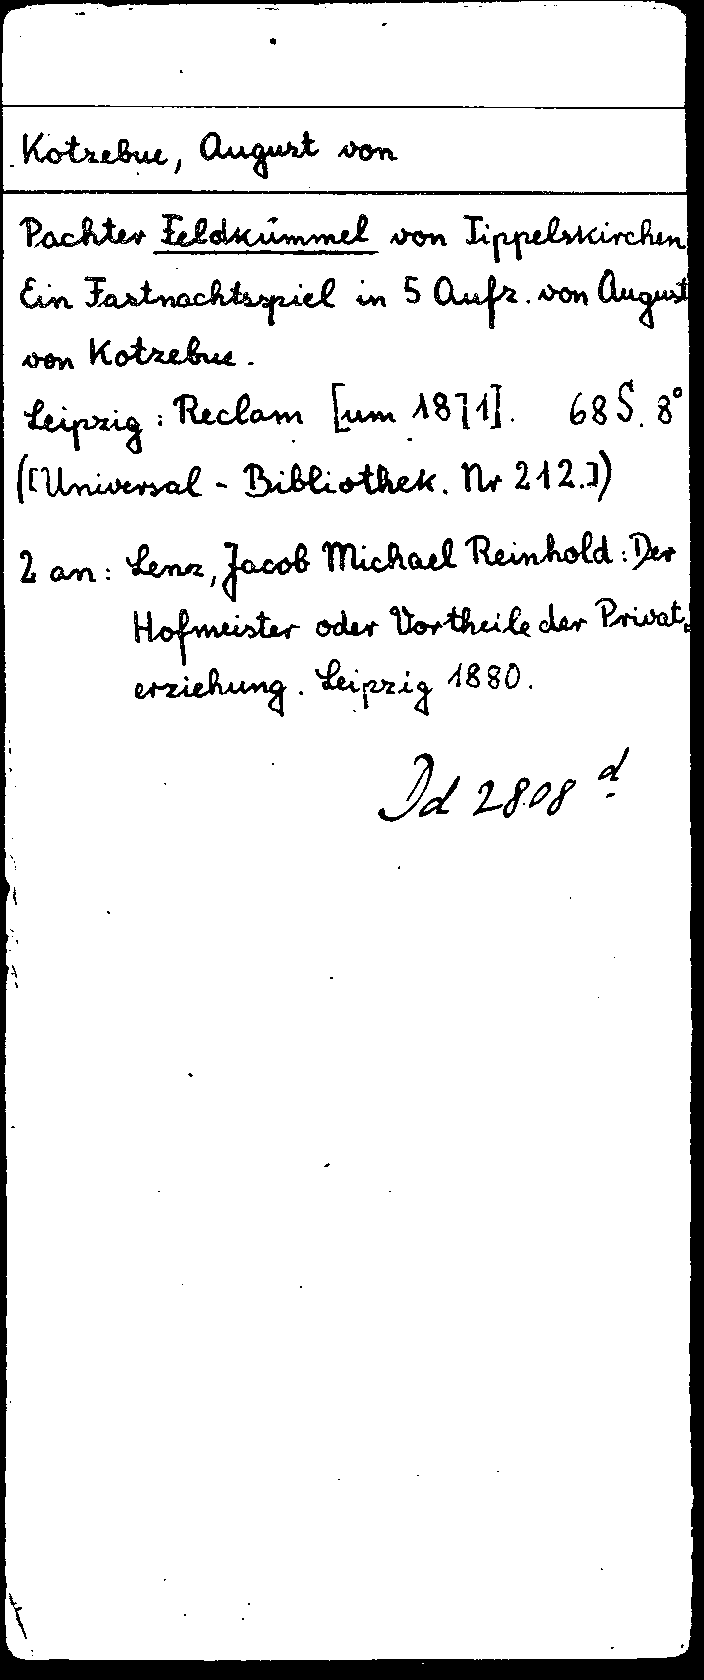 Kotzebue, August von
Pachter Feldkümmel von Tippelskirchen
Ein Fastnachtsspiel in 5 Aufz. von August
von Kotzebue.
Leipzig: Reclam [um 1871]. 68 S. 8°
([Universal-Bibliothek. Nr 212.])
2 an: Lenz, Jacob Michael Reinhold: Der
Hofmeister oder Vortheile der Privat-
erziehung. Leipzig 1880.
Dd 2808 d